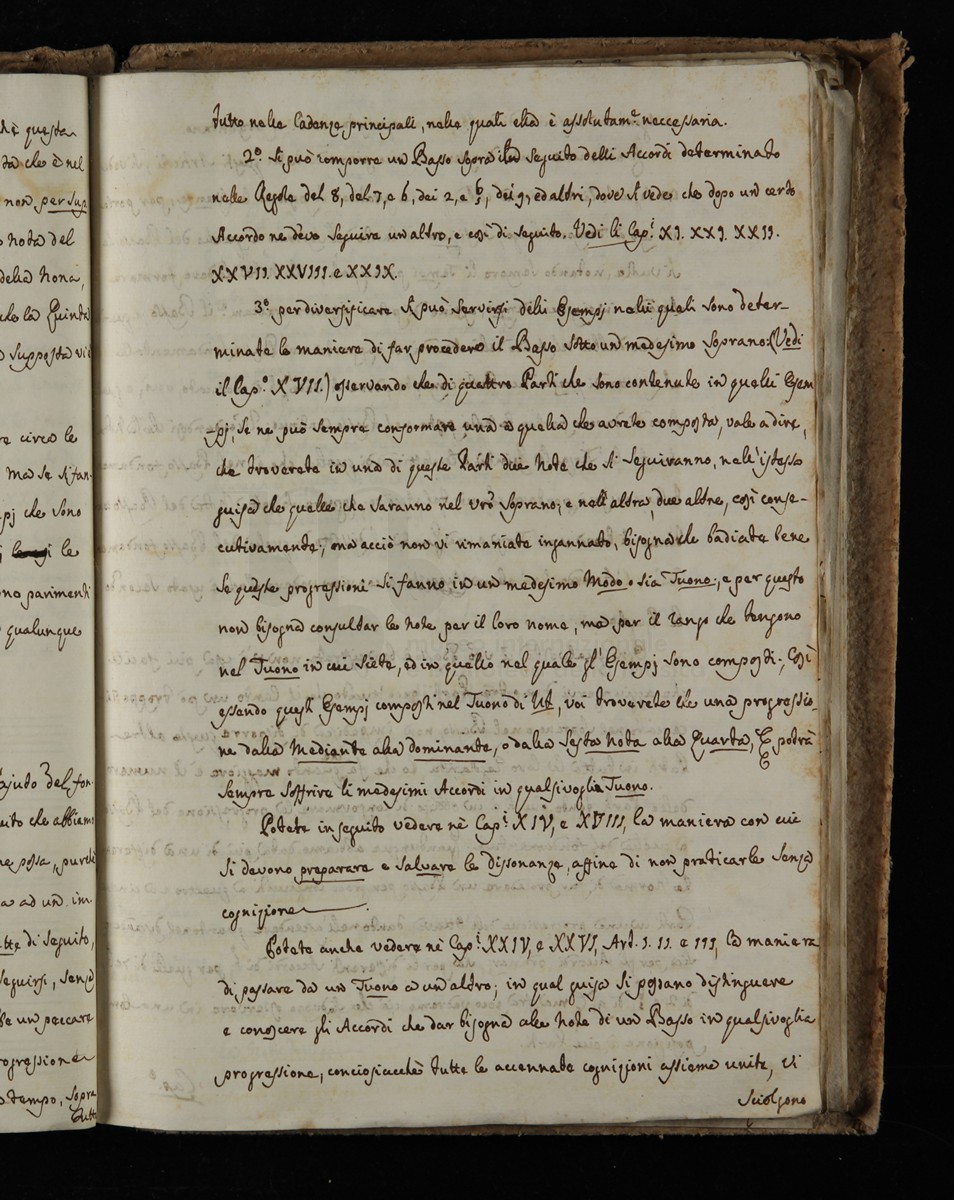 hè questa
ta che è nel
non per sup
nota del
della nona,
che la Quinta
supposta vi è
re circa le
ma se si fan-
pj che sono
le
no parimenti
qualunque
ajuto del fon-
uito che abbiamo
possa, purchè
a ad un im-
tte di seguito,
seguirsi, senza
un peccare
rogressione
tempo, sopra
tutto
tutto nelle Cadenze principali, nelle quali ella è assolutam.e neccessaria.
2.o Si può comporre un Basso sopra un seguito delli Accordi determinato
nelle Regole del 8, del 7, e 6, dei 2, e 6/5, dei 9, ed altri, dove si vede che dopo un certo
Accordo ne deve seguire un altro, e così di seguito. Vedi li Cap.i XI. XXI. XXII.
XXVII. XXVIII. e XXIX.
3.o per diversificare si può servirsi delli Esempj nelli quali sono deter-
minate le maniere di far procedere il Basso sotto un medesimo Soprano: (Vedi
il Cap.o XVII.) osservando che di quattro Parti che sono contenute in quelli Esem
-pj, se ne può sempre conformare una a quella che avrete composta, vale a dire,
che troverete in una di queste Parti due Note che si seguiranno, nell'istessa
guisa che quelle che saranno nel vro Soprano; e nell'altra, due altre, così conse-
cutivamente; ma acciò non vi rimaniate ingannato, bisogna che badiate bene
se queste progressioni si fanno in un medesimo Modo o sia Tuono; e per questo
non bisogna consultar le note per il loro nome, ma per il rango che tengono
nel Tuono in cui siete, ed in quello nel quale gl'Esempj sono composti; Così
essendo questi Esempj composti nel Tuono di Ut, voi troverete che una progressio-
ne dalla Mediante alla dominante, o dalla Sesta nota alla Quarta, &c potrà
sempre soffrire li medesimi Accordi in qualsivoglia Tuono.
Potete in seguito vedere nè Cap.i XIV, e XVIII, la maniera con cui
si devono preparare e salvare le dissonanze, affine di non praticarle senza
cognizione.
Potete anche vedere nè Cap.i XXIV, e XXVI, Art. I. II. e III, la maniera
di passare da un Tuono a un'altro; in qual guisa si possano distinguere
e conoscere gli Accordi che dar bisogna alle Note di un Basso in qualsivoglia
progressione, conciosiacchè tutte le accennate cognizioni assieme unite, vi
sciolgono